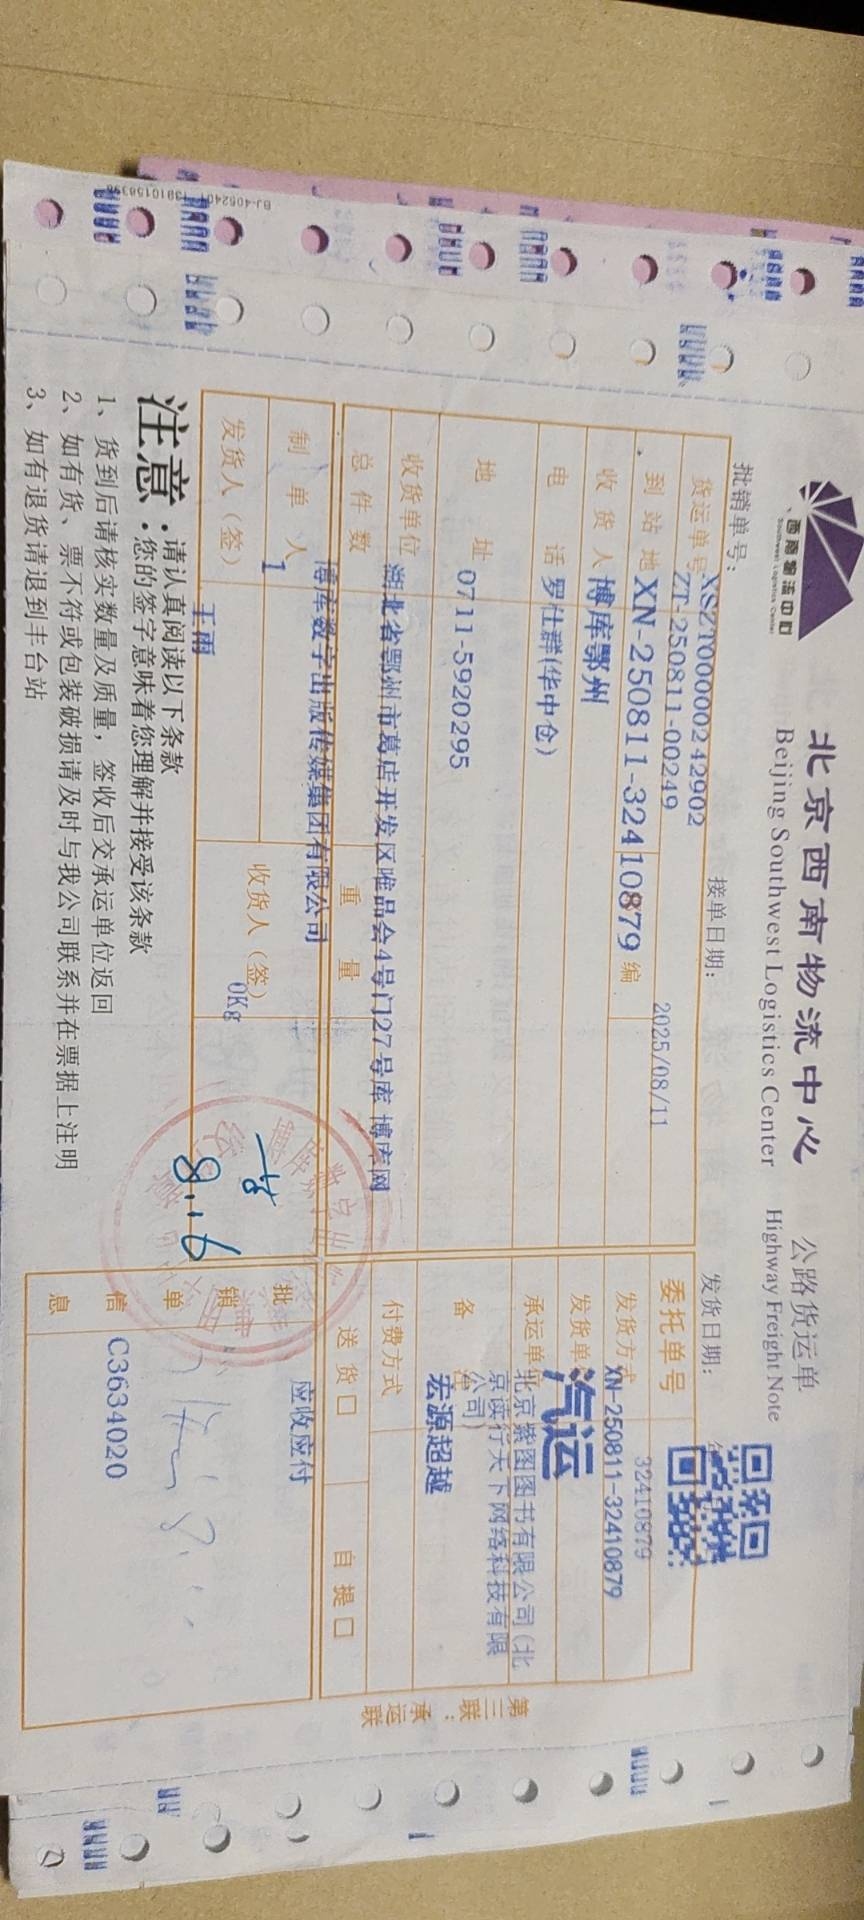 西南物流中心
Southwest Logistics Center
北京西南物流中心
Beijing Southwest Logistics Center
公路货运单
Highway Freight Note
批销单号：
XSZT000000242902
接单日期：
2025/08/11
发货日期：
货运单号
ZT-250811-00249
委托单号
32410879
到站地
XN-250811-32410879
编
发货方式
XN-250811-32410879
收货人
博库鄂州
发货单
汽运
电话
罗仕群(华中仓)
承运单位
北京紫图图书有限公司(北
京读行天下网络科技有限
公司)
地址
0711-5920295
备
宏源超越
收货单位
湖北省鄂州市葛店开发区唯品会4号门27号库 博库网
付费方式
总件数
博库数字出版传媒集团有限公司
重量
送货口
自提口
制单人
1
收货人（签）
0Kg
批销单信息
应收应付
C3634020
发货人（签）
王雨
8.16
第三联：承运联
注意：请认真阅读以下条款
您的签字意味着您理解并接受该条款
1、货到后请核实数量及质量，签收后交承运单位返回
2、如有货、票不符或包装破损请及时与我公司联系并在票据上注明
3、如有退货请退到丰台站